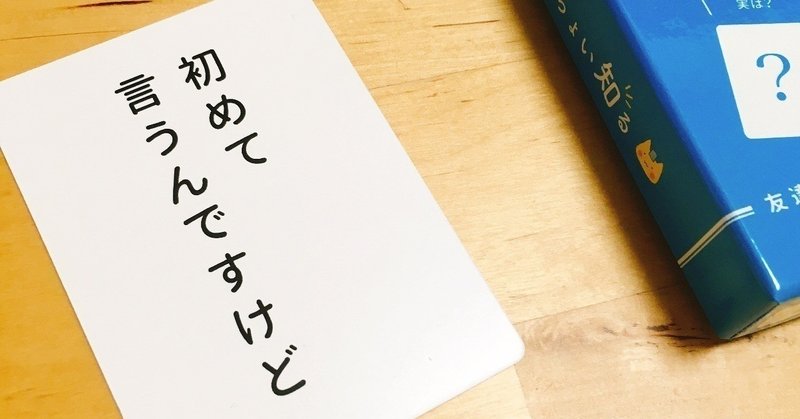 初めて
言うんですけど
ょい知る
実は？
？
友達